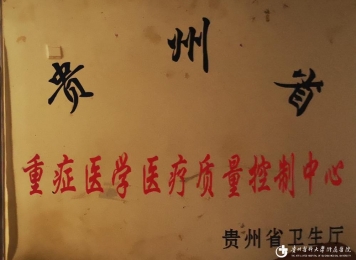 贵州省
重症医学医疗质量控制中心
贵州省卫生厅
贵州医科大学附属医院